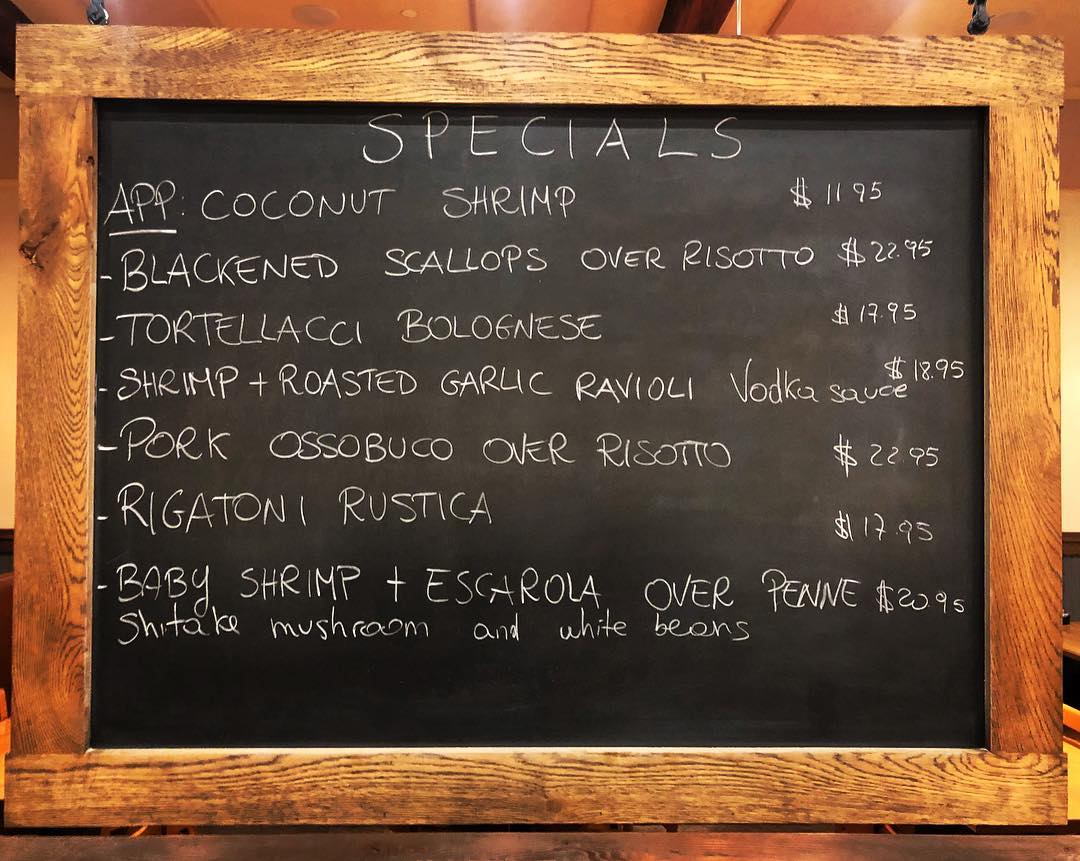 SPECIALS
APP: COCONUT SHRIMP $11.95
-BLACKENED SCALLOPS OVER RISOTTO $22.95
-TORTELLACCI BOLOGNESE $17.95
-SHRIMP + ROASTED GARLIC RAVIOLI Vodka sauce $18.95
-PORK OSSOBUCO OVER RISOTTO $22.95
-RIGATONI RUSTICA $17.95
-BABY SHRIMP + ESCAROLA OVER PENNE $20.95
Shitake mushroom and white beans